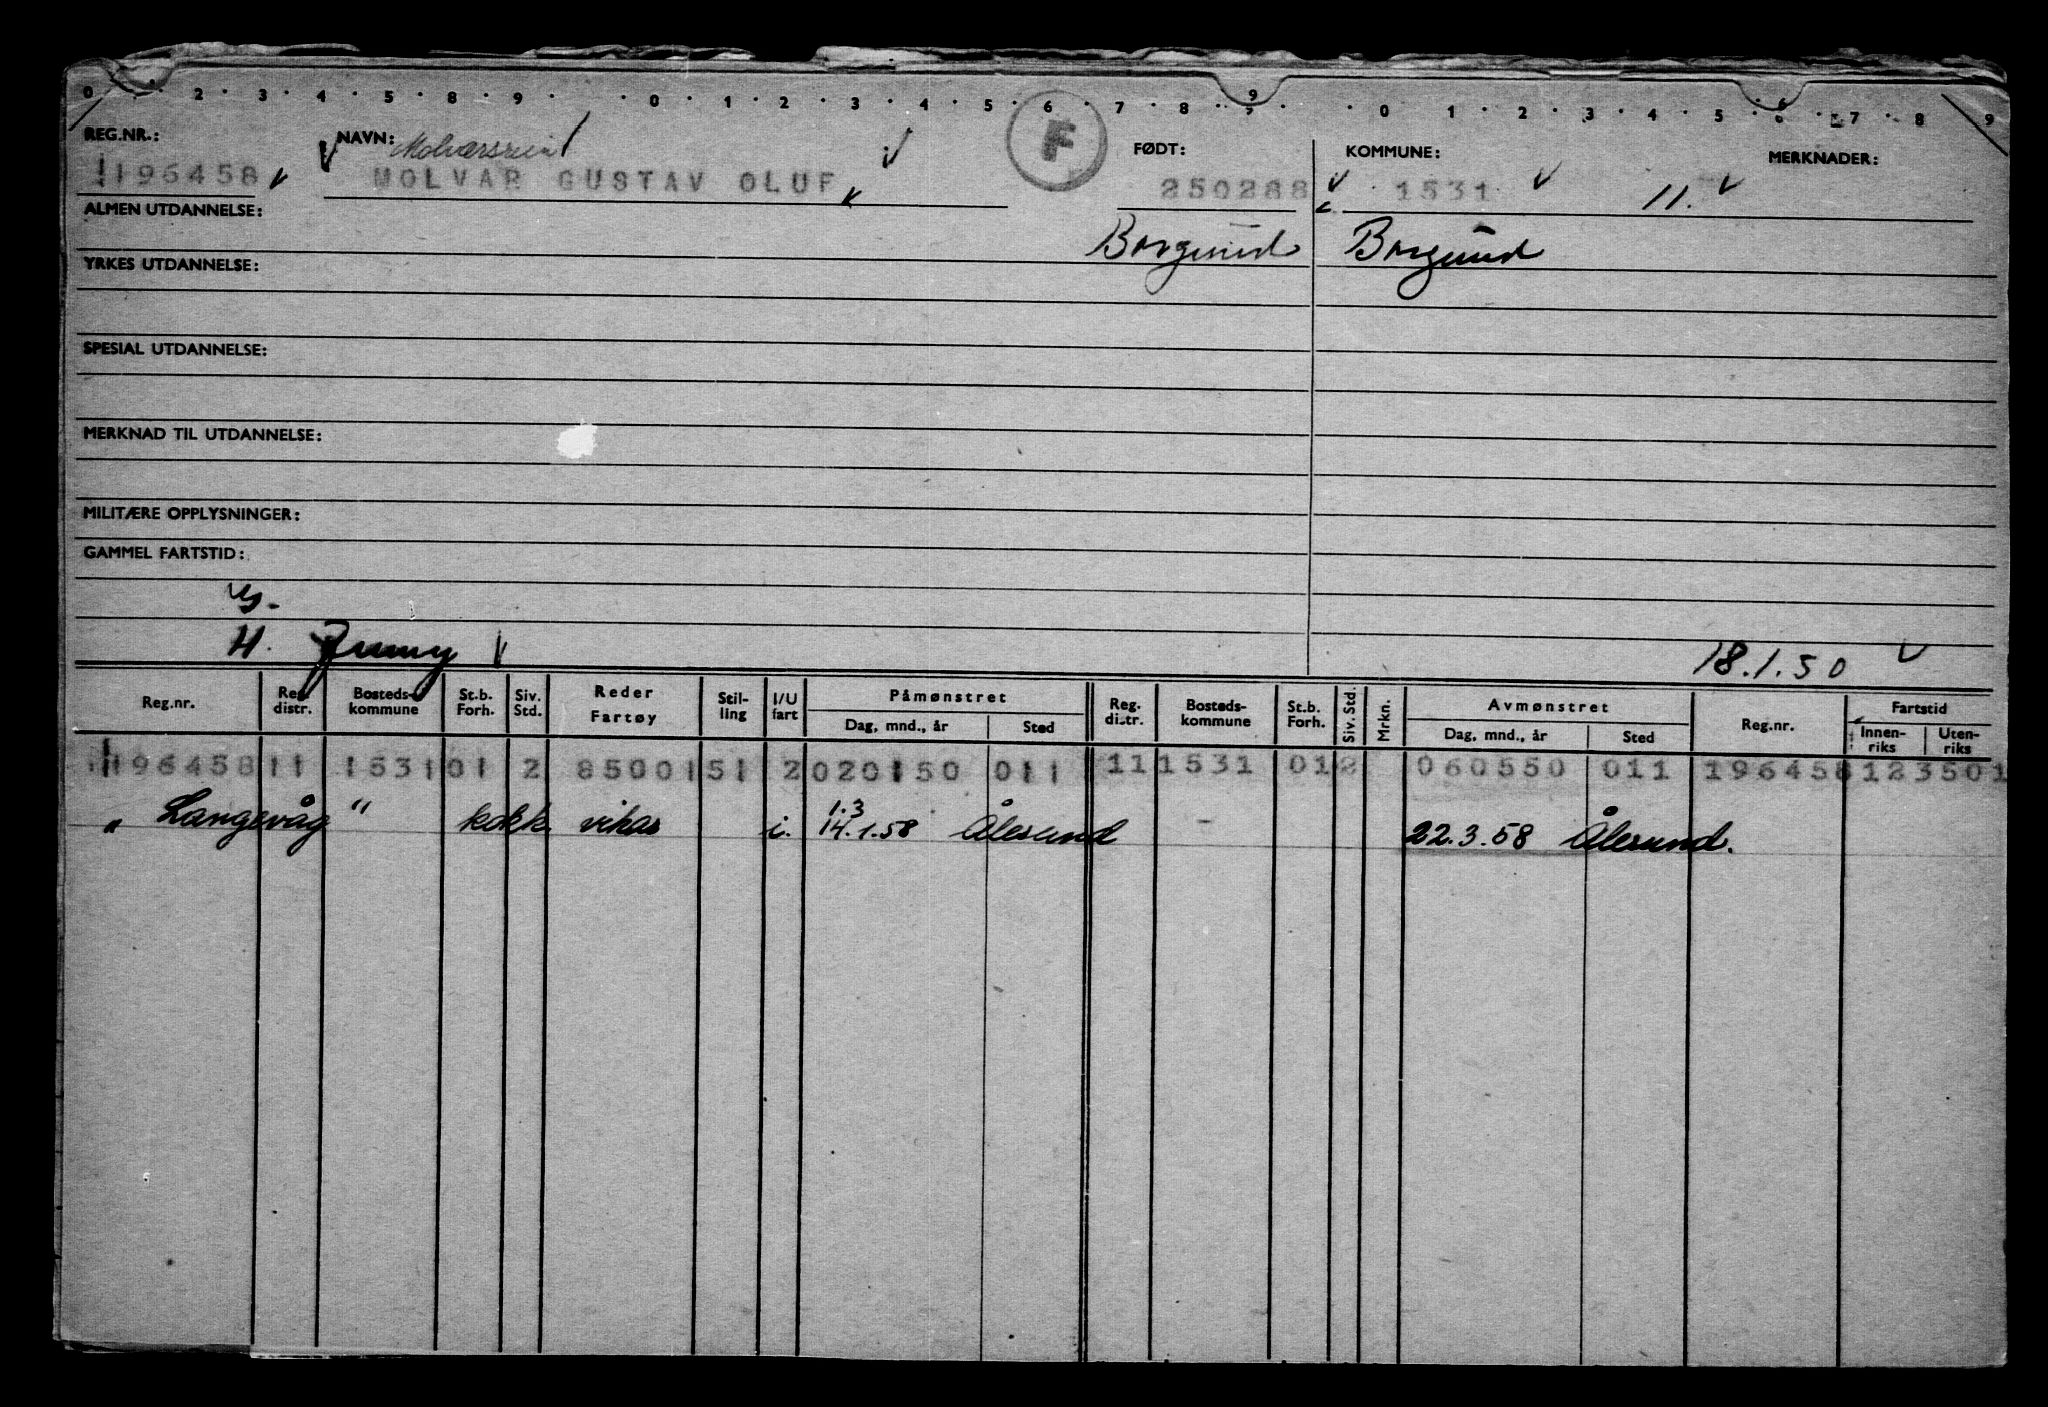 0 2 3 4 5 8 9 0 1 2 3 4 5 6 7 8 9 0 1 2 3 4 5 6 7 8 9
REG.NR.: NAVN: F FØDT: KOMMUNE: MERKNADER:
196458 MOLVAR GUSTAV OLUF 250288 1531 11.
ALMEN UTDANNELSE: Borgund Borgund
YRKES UTDANNELSE:
SPESIAL UTDANNELSE:
MERKNAD TIL UTDANNELSE:
MILITÆRE OPPLYSNINGER:
GAMMEL FARTSTID:
H. 18.1.50
Reg.nr. Reg. distr. Bosteds- kommune St.b. Forh. Siv. Std. Reder Fartøy Stil- ling I/U fart Påmønstret Dag, mnd., år Sted Reg. di.tr. Bosteds- kommune St.b. Forh. Siv. Std. Mrkn. Avmønstret Dag, mnd., år Sted Reg.nr. Fartstid Innen- riks Uten- riks
196458 11 1531 01 2 85001 51 2 020150 011 11 1531 01 2 060550 011 196458 123501
1.3
" Langevåg " kokk vikas i. 14.1.58 Ålesund - 22.3.58 Ålesund.